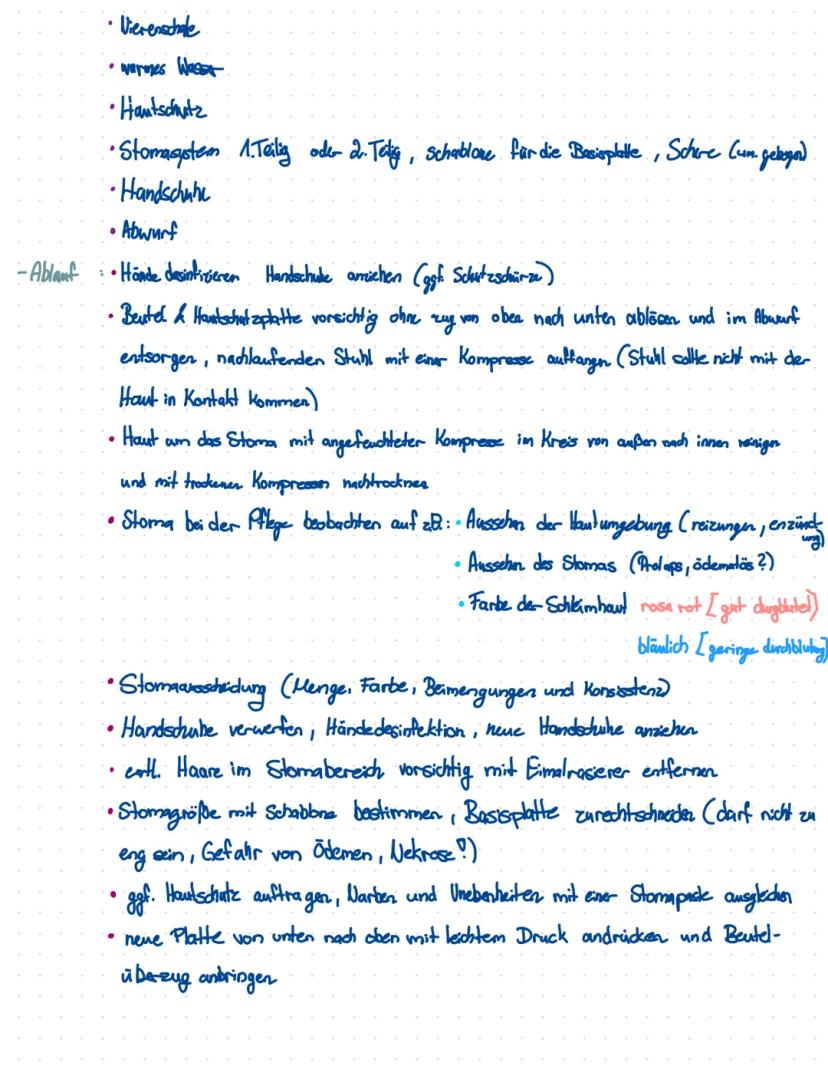 • Nierenschale
• warmes Wasser
• Hautschutz
• Stomasystem 1.Teilig oder 2.Teilig, schablone für die Basisplatte, Schere (um. gebogen)
• Handschuhe
• Abwurf
- Ablauf : • Hände desinfizieren Handschuhe anziehen (ggf. Schutzschürze)
• Beutel & Hautschutzplatte vorsichtig ohne zug von oben nach unten ablösen und im Abwurf
entsorgen, nachlaufenden Stuhl mit einer Kompresse auffangen (Stuhl sollte nicht mit der
Haut in Kontakt kommen)
• Haut um das Stoma mit angefeuchteter Kompresse im Kreis von außen nach innen reinigen
und mit trockenen Kompressen nachtrocknen
• Stoma bei der Pflege beobachten auf zB: • Aussehen der Hautumgebung (reizungen, enzünd-
ung)
• Aussehen des Stomas (Prolaps, ödematös?)
• Farbe der Schleimhaut rosa rot [gut durgblutet]
bläulich [geringe durchblutung]
• Stomaausscheidung (Menge, Farbe, Beimengungen und Konsistenz)
• Handschuhe verwerfen, Händedesinfektion, neue Handschuhe anziehen
• evtl. Haare im Stomabereich vorsichtig mit Eimalrasierer entfernen
• Stomagröße mit Schablone bestimmen, Basisplatte zurechtschneiden (darf nicht zu
eng sein, Gefahr von Ödemen, Nekrose!)
• ggf. Hautschutz auftragen, Narben und Unebenheiten mit einer Stomapaste ausgleichen
• neue Platte von unten nach oben mit leichtem Druck andrücken und Beutel-
überzug anbringen